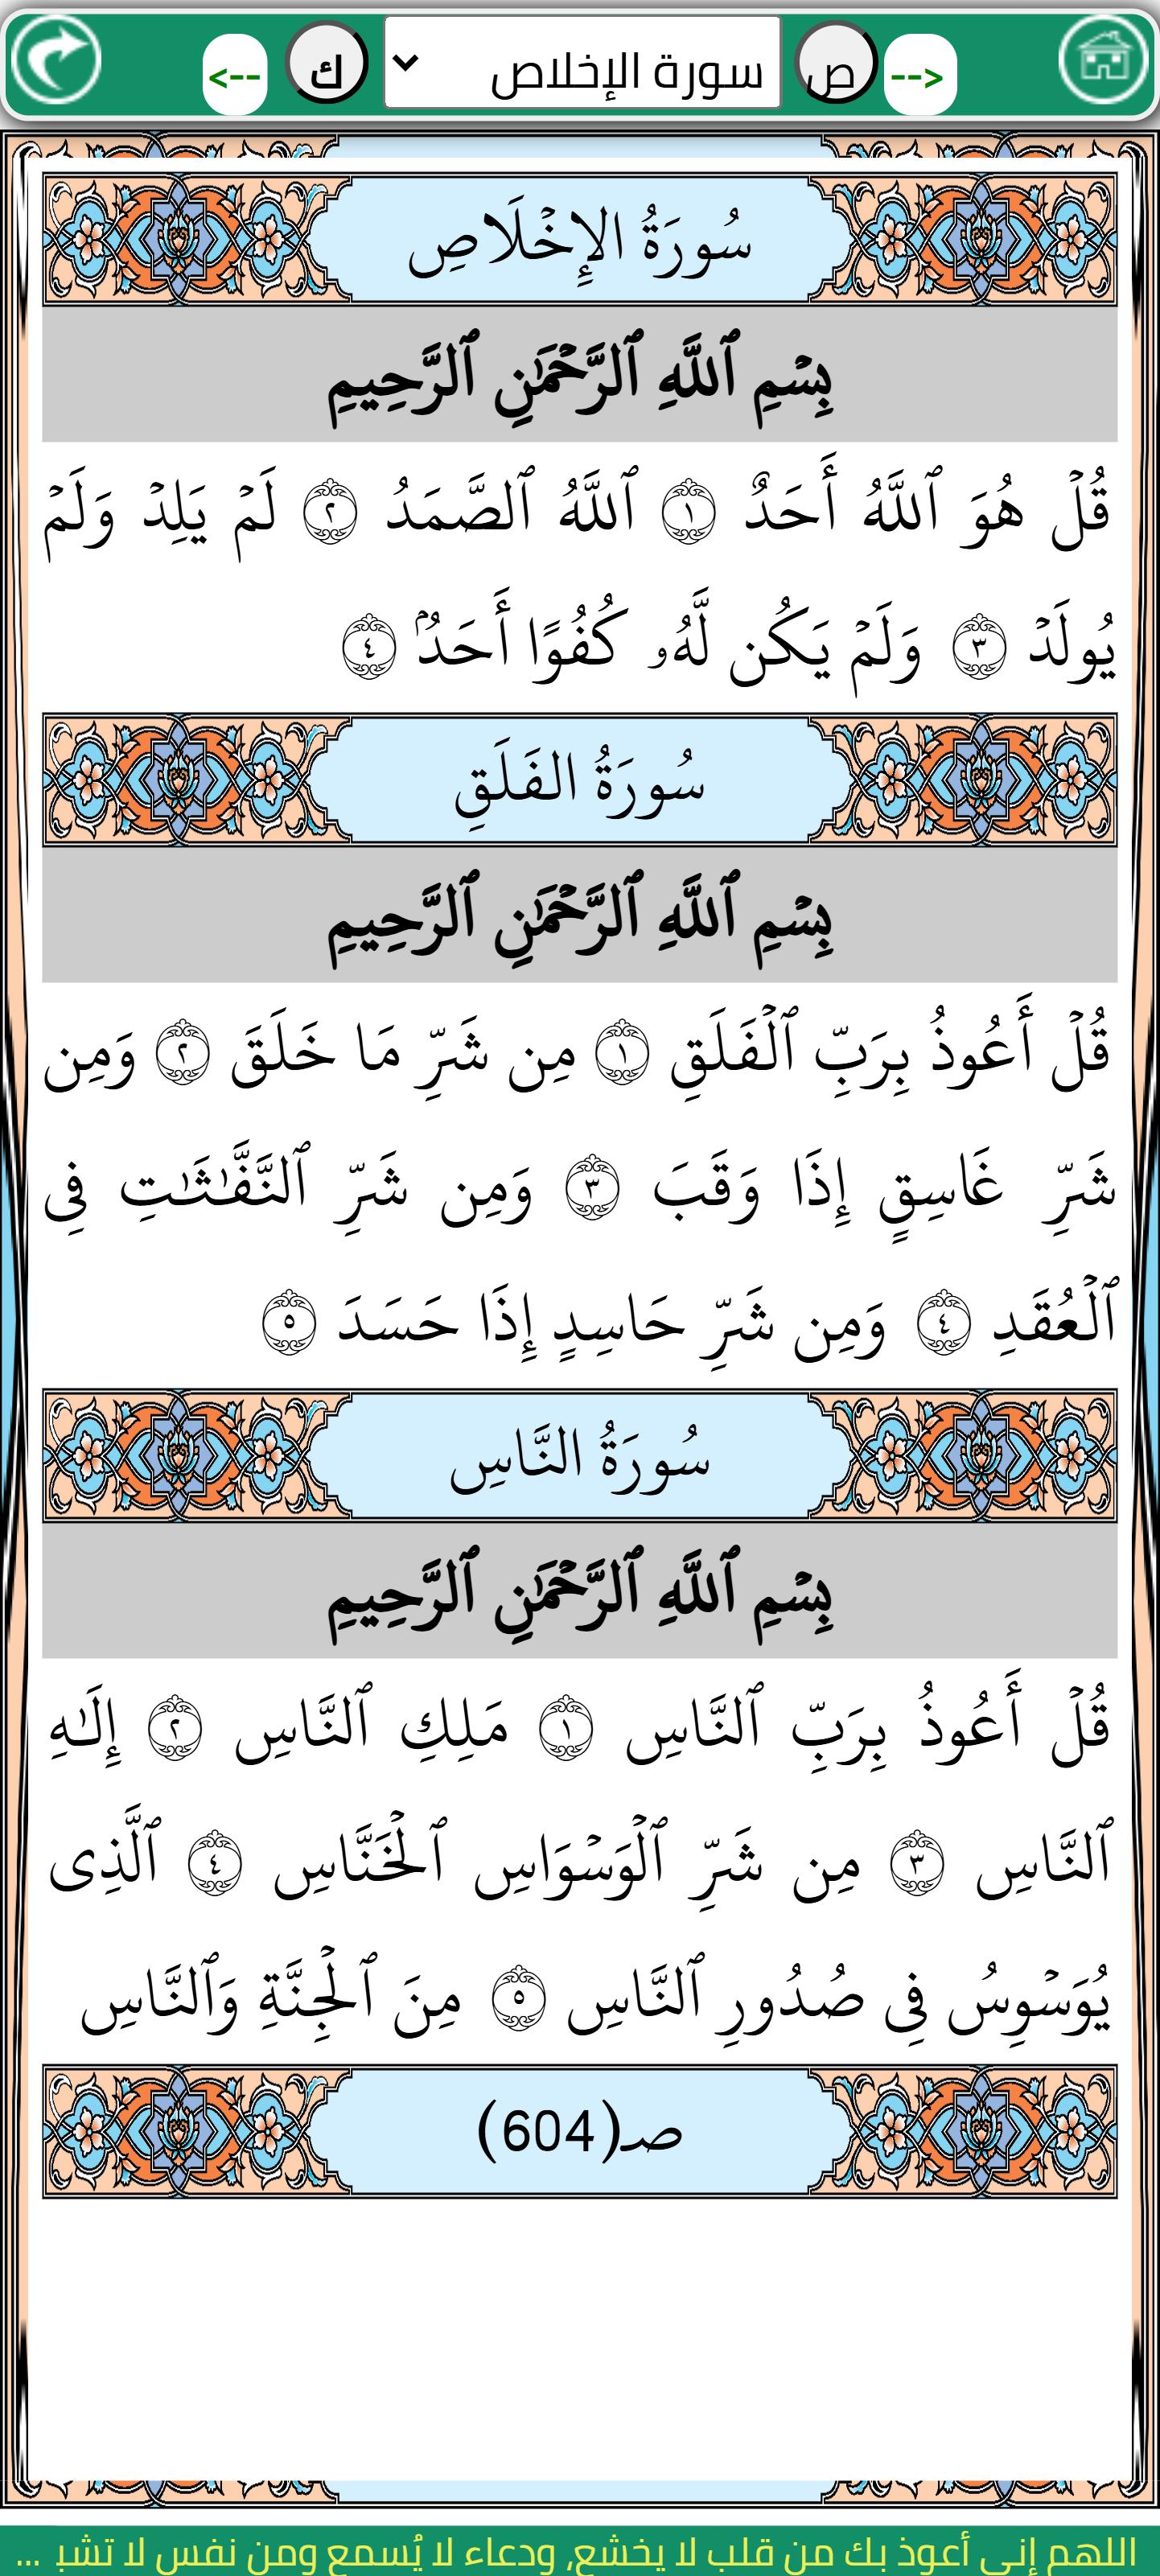 --> ص سورة الإخلاص ك <--
سُورَةُ الإِخْلَاصِ
بِسۡمِ ٱللَّهِ ٱلرَّحۡمَٰنِ ٱلرَّحِيمِ
قُلۡ هُوَ ٱللَّهُ أَحَدٌ ١ ٱللَّهُ ٱلصَّمَدُ ٢ لَمۡ يَلِدۡ وَلَمۡ
يُولَدۡ ٣ وَلَمۡ يَكُن لَّهُۥ كُفُوًا أَحَدُۢ ٤
سُورَةُ الفَلَقِ
بِسۡمِ ٱللَّهِ ٱلرَّحۡمَٰنِ ٱلرَّحِيمِ
قُلۡ أَعُوذُ بِرَبِّ ٱلۡفَلَقِ ١ مِن شَرِّ مَا خَلَقَ ٢ وَمِن
شَرِّ غَاسِقٍ إِذَا وَقَبَ ٣ وَمِن شَرِّ ٱلنَّفَّٰثَٰتِ فِي
ٱلۡعُقَدِ ٤ وَمِن شَرِّ حَاسِدٍ إِذَا حَسَدَ ٥
سُورَةُ النَّاسِ
بِسۡمِ ٱللَّهِ ٱلرَّحۡمَٰنِ ٱلرَّحِيمِ
قُلۡ أَعُوذُ بِرَبِّ ٱلنَّاسِ ١ مَلِكِ ٱلنَّاسِ ٢ إِلَٰهِ
ٱلنَّاسِ ٣ مِن شَرِّ ٱلۡوَسۡوَاسِ ٱلۡخَنَّاسِ ٤ ٱلَّذِى
يُوَسۡوِسُ فِي صُدُورِ ٱلنَّاسِ ٥ مِنَ ٱلۡجِنَّةِ وَٱلنَّاسِ
صـ(604)
اللهم إني أعوذ بك من قلب لا يخشع، ودعاء لا يُسمع ومن نفس لا تشب ...